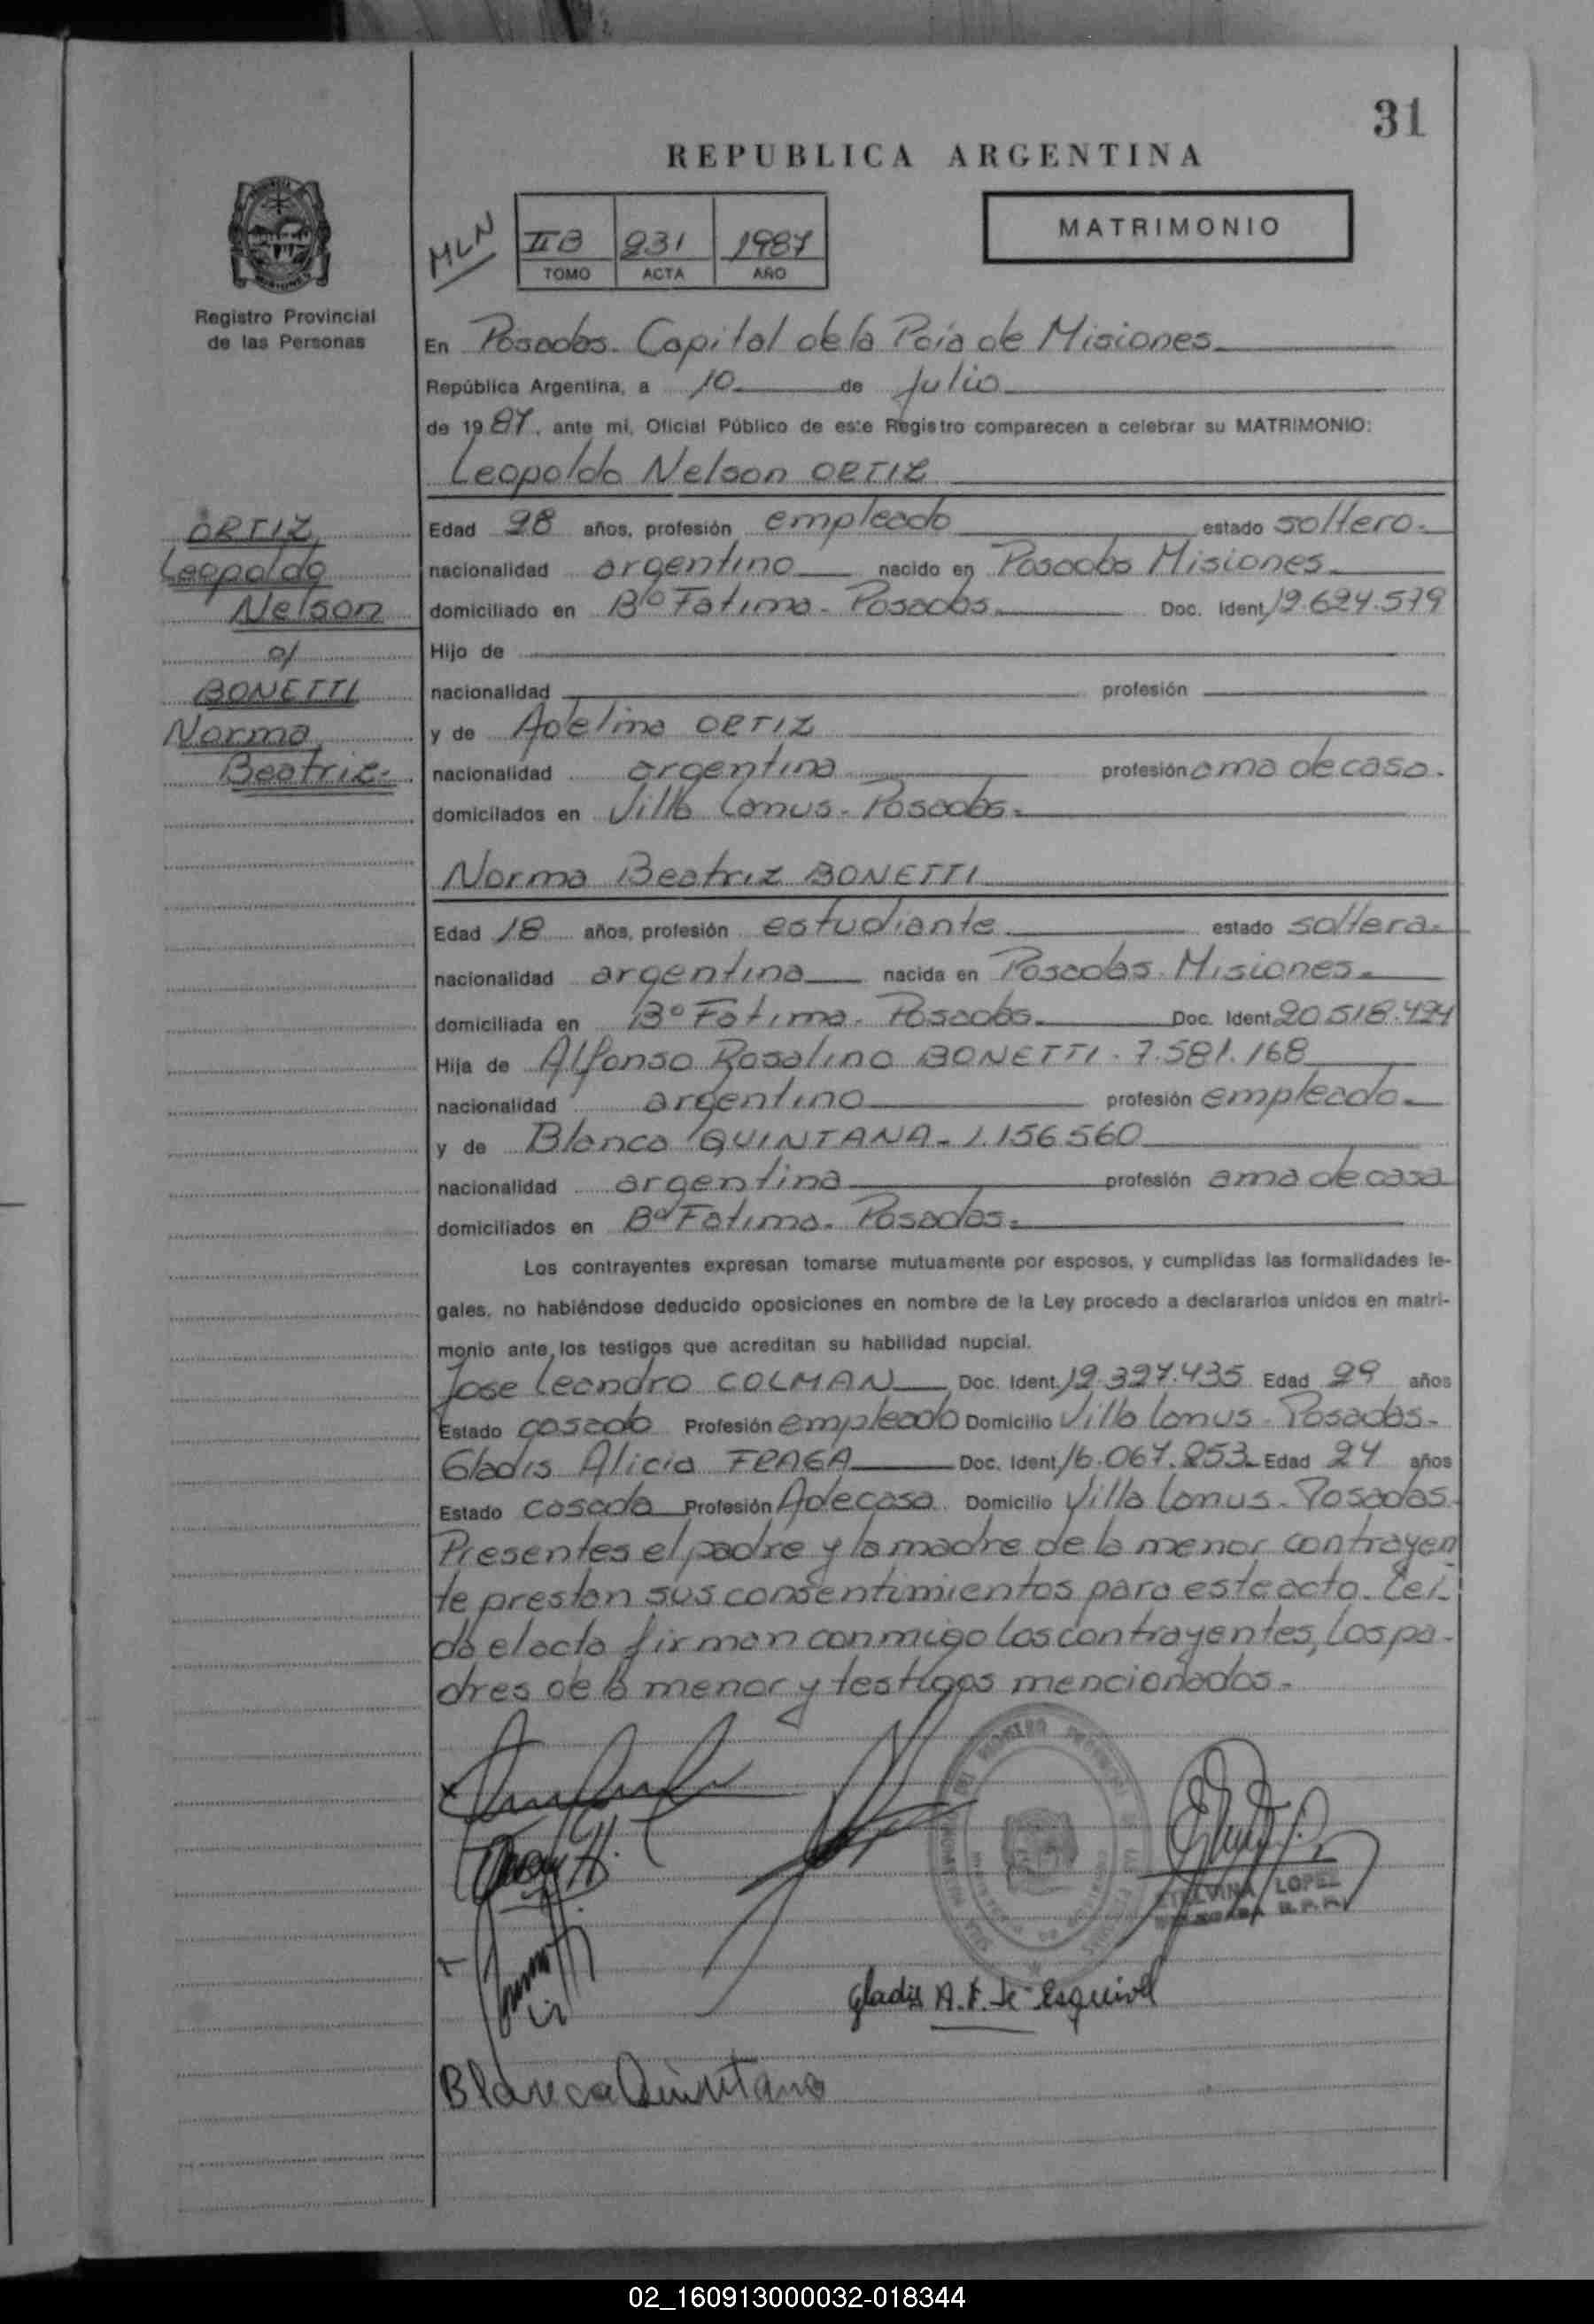 31
REPUBLICA ARGENTINA
MLN
II B 231 1987
TOMO ACTA AÑO
MATRIMONIO
Registro Provincial
de las Personas
En Posadas. Capital de la Pcia de Misiones
República Argentina, a 10 de Julio
de 1987, ante mi, Oficial Público de este Registro comparecen a celebrar su MATRIMONIO:
Leopoldo Nelson ORTIZ
ORTIZ,
Leopoldo
Nelson
c/
BONETTI
Norma
Beatriz.
Edad 28 años, profesión empleado estado soltero.
nacionalidad argentino nacido en Posadas Misiones
domiciliado en Bº Fatima. Posadas. Doc. Ident. 12.624.579
Hijo de
nacionalidad profesión
y de Adelina ORTIZ
nacionalidad argentina profesión ama de casa.
domiciliados en Villa Lanus. Posadas.
Norma Beatriz BONETTI
Edad 18 años, profesión estudiante estado soltera.
nacionalidad argentina nacida en Posadas. Misiones.
domiciliada en Bº Fatima. Posadas. Doc. Ident. 20.518.424
Hija de Alfonso Rosalino BONETTI. 7.581.168
nacionalidad argentino profesión empleado.
y de Blanca QUINTANA. 1.156.560
nacionalidad argentina profesión ama de casa
domiciliados en Bº Fatima. Posadas.
Los contrayentes expresan tomarse mutuamente por esposos, y cumplidas las formalidades le-
gales, no habiéndose deducido oposiciones en nombre de la Ley procedo a declararlos unidos en matri-
monio ante los testigos que acreditan su habilidad nupcial.
Jose Leandro COLMAN Doc. Ident. 12.327.435 Edad 29 años
Estado casado Profesión empleado Domicilio Villa Lanus. Posadas.
Gladis Alicia FRAGA Doc. Ident. 16.067.253 Edad 24 años
Estado casada Profesión A de casa Domicilio Villa Lanus. Posadas.
Presentes el padre y la madre de la menor contrayen
te prestan sus consentimientos para este acto. Lei-
da el acta firman conmigo los contrayentes, los pa-
dres de la menor y testigos mencionados.
ETELVINA LOPEZ
Gladis A. F. de Esquivel
Blanca Quintana
02_160913000032-018344